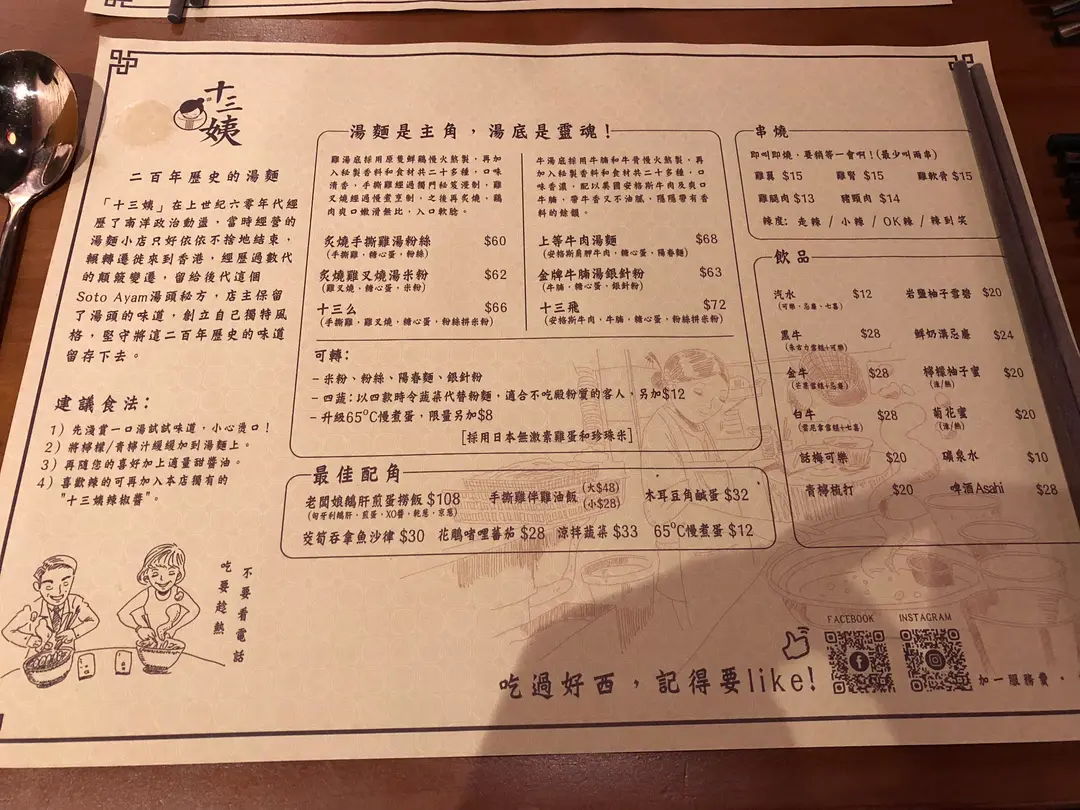 十三姨
二百年歷史的湯麵
「十三姨」在上世紀六零年代經
歷了南洋政治動盪，當時經營的
湯麵小店只好依依不捨地結束，
輾轉遷徙來到香港，經歷過數代
的顛簸變遷，留給後代這個
Soto Ayam湯頭秘方，店主保留
了湯頭的味道，創立自己獨特風
格，堅守將這二百年歷史的味道
留存下去。
建議食法：
1) 先淺嘗一口湯試試味道，小心燙口！
2) 將檸檬/青檸汁緩緩加到湯麵上。
3) 再隨您的喜好加上適量甜醬油。
4) 喜歡辣的可再加入本店獨有的
"十三姨辣椒醬"。
吃要趁熱
不要看電話
湯麵是主角，湯底是靈魂！
雞湯底採用原隻鮮鷄慢火熬製，再加
入秘製香料和食材共二十多種，口味
清香，手撕雞經過獨門秘笈浸制，雞
叉燒經過慢煮烹制，之後再炙燒，鷄
肉爽口嫩滑無比，入口軟稔。
炙燒手撕雞湯粉絲 $60
(手撕雞，糖心蛋，粉絲)
炙燒雞叉燒湯米粉 $62
(雞叉燒，糖心蛋，米粉)
十三么 $66
(手撕雞，雞叉燒，糖心蛋，粉絲拼米粉)
牛湯底採用牛腩和牛骨慢火熬製，再
加入秘製香料和食材共二十多種，口
味香濃，配以美國安格斯牛肉及爽口
牛腩，帶牛香又不油膩，隱隱帶有香
料的餘韻。
上等牛肉湯麵 $68
(安格斯肩胛牛肉，糖心蛋，陽春麵)
金牌牛腩湯銀針粉 $63
(牛腩，糖心蛋，銀針粉)
十三飛 $72
(安格斯牛肉，牛腩，糖心蛋，粉絲拼米粉)
可轉：
– 米粉、粉絲、陽春麵、銀針粉
– 四蔬：以四款時令蔬菜代替粉麵，適合不吃澱粉質的客人，另加$12
– 升級65°C慢煮蛋，限量另加$8
[採用日本無激素雞蛋和珍珠米]
最佳配角
老闆娘鵝肝煎蛋撈飯 $108
(匈牙利鵝肝，煎蛋，XO醬，乾葱，京葱)
手撕雞伴雞油飯 (大$48)
(小$28)
木耳豆角鹹蛋 $32
茭筍吞拿魚沙律 $30
花鵰啫哩蕃茄 $28
涼拌蔬菜 $33
65°C慢煮蛋 $12
串燒
即叫即燒，要稍等一會啊！(最少叫兩串)
雞翼 $15
雞腎 $15
雞軟骨 $15
雞腿肉 $13
豬頸肉 $14
辣度： 走辣 / 小辣 / OK辣 / 辣到笑
飲品
汽水 $12
(可樂，忌廉，七喜)
岩鹽柚子雪碧 $20
黑牛 $28
(朱古力雪糕+可樂)
鮮奶溝忌廉 $24
金牛 $28
(芒果雪糕+忌廉)
檸檬柚子蜜 $20
(凍/熱)
白牛 $28
(雲尼拿雪糕+七喜)
菊花蜜 $20
(凍/熱)
話梅可樂 $20
礦泉水 $10
青檸梳打 $20
啤酒Asahi $28
FACEBOOK
INSTAGRAM
吃過好西，記得要like!
加一服務費。